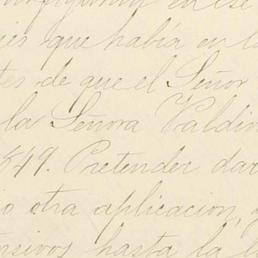 en ese
que había en la
tes de que el Señor
la Señora Valdi
849. Pretender dar
o otra aplicacion,
ensivos hasta la